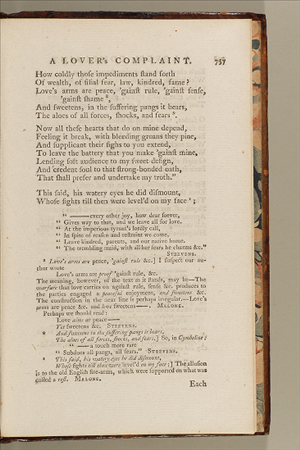 A LOVER's COMPLAINT. 757
How coldly those impediments stand forth
Of wealth, of filial fear, law, kindred, fame?
Love's arms are peace, 'gainst rule, 'gainst sense,
'gainst shame
And sweetens, in the suffering pangs it bears,
The aloes of all forces, shocks, and fears
Now all these hearts that do on mine depend,
Feeling it break, with bleeding groans they pine,
And supplicant their sighs to you extend,
To leave the battery that you make 'gainst mine,
Lending soft audience to my sweet design,
And credent soul to that strong-bonded oath,
That shall prefer and undertake my troth."
This said, his watery eyes he did dismount,
Whose sights till then were level'd on my face ;
" —— every other joy, how dear soever,
" Gives way to that, and we leave all for love.
" At the imperious tyrant's lordly call,
" In spite of reason and restraint we come,
" Leave kindred, parents, and our native home.
" The trembling maid, with all her fears he charms &c."
STEEVENS.
Love's arms are peace, 'gainst rule &c.] I suspect our au-
thor wrote
Love's arms are proof 'gainst rule, &c.
The meaning, however, of the text as it stands, may be—The
warfare that love carries on against rule, sense &c. produces to
the parties engaged a peaceful enjoyment, and sweetens &c.
The construction in the next line is perhaps irregular.—Love's
arms are peace &c. and love sweetens—. MALONE.
Perhaps we should read:
Love aims at peace——
Yet sweetens &c. STEEVENS.
And sweetens in the suffering pangs it bears,
The aloes of all forces, shocks, and fears.] So, in Cymbeline:
" —— a touch more rare
" Subdues all pangs, all fears." STEEVENS.
This said, his watery eyes he did dismount,
Whose sights till then were level'd on my face;] The allusion
is to the old English fire-arms, which were supported on what was
called a rest. MALONE.
Each